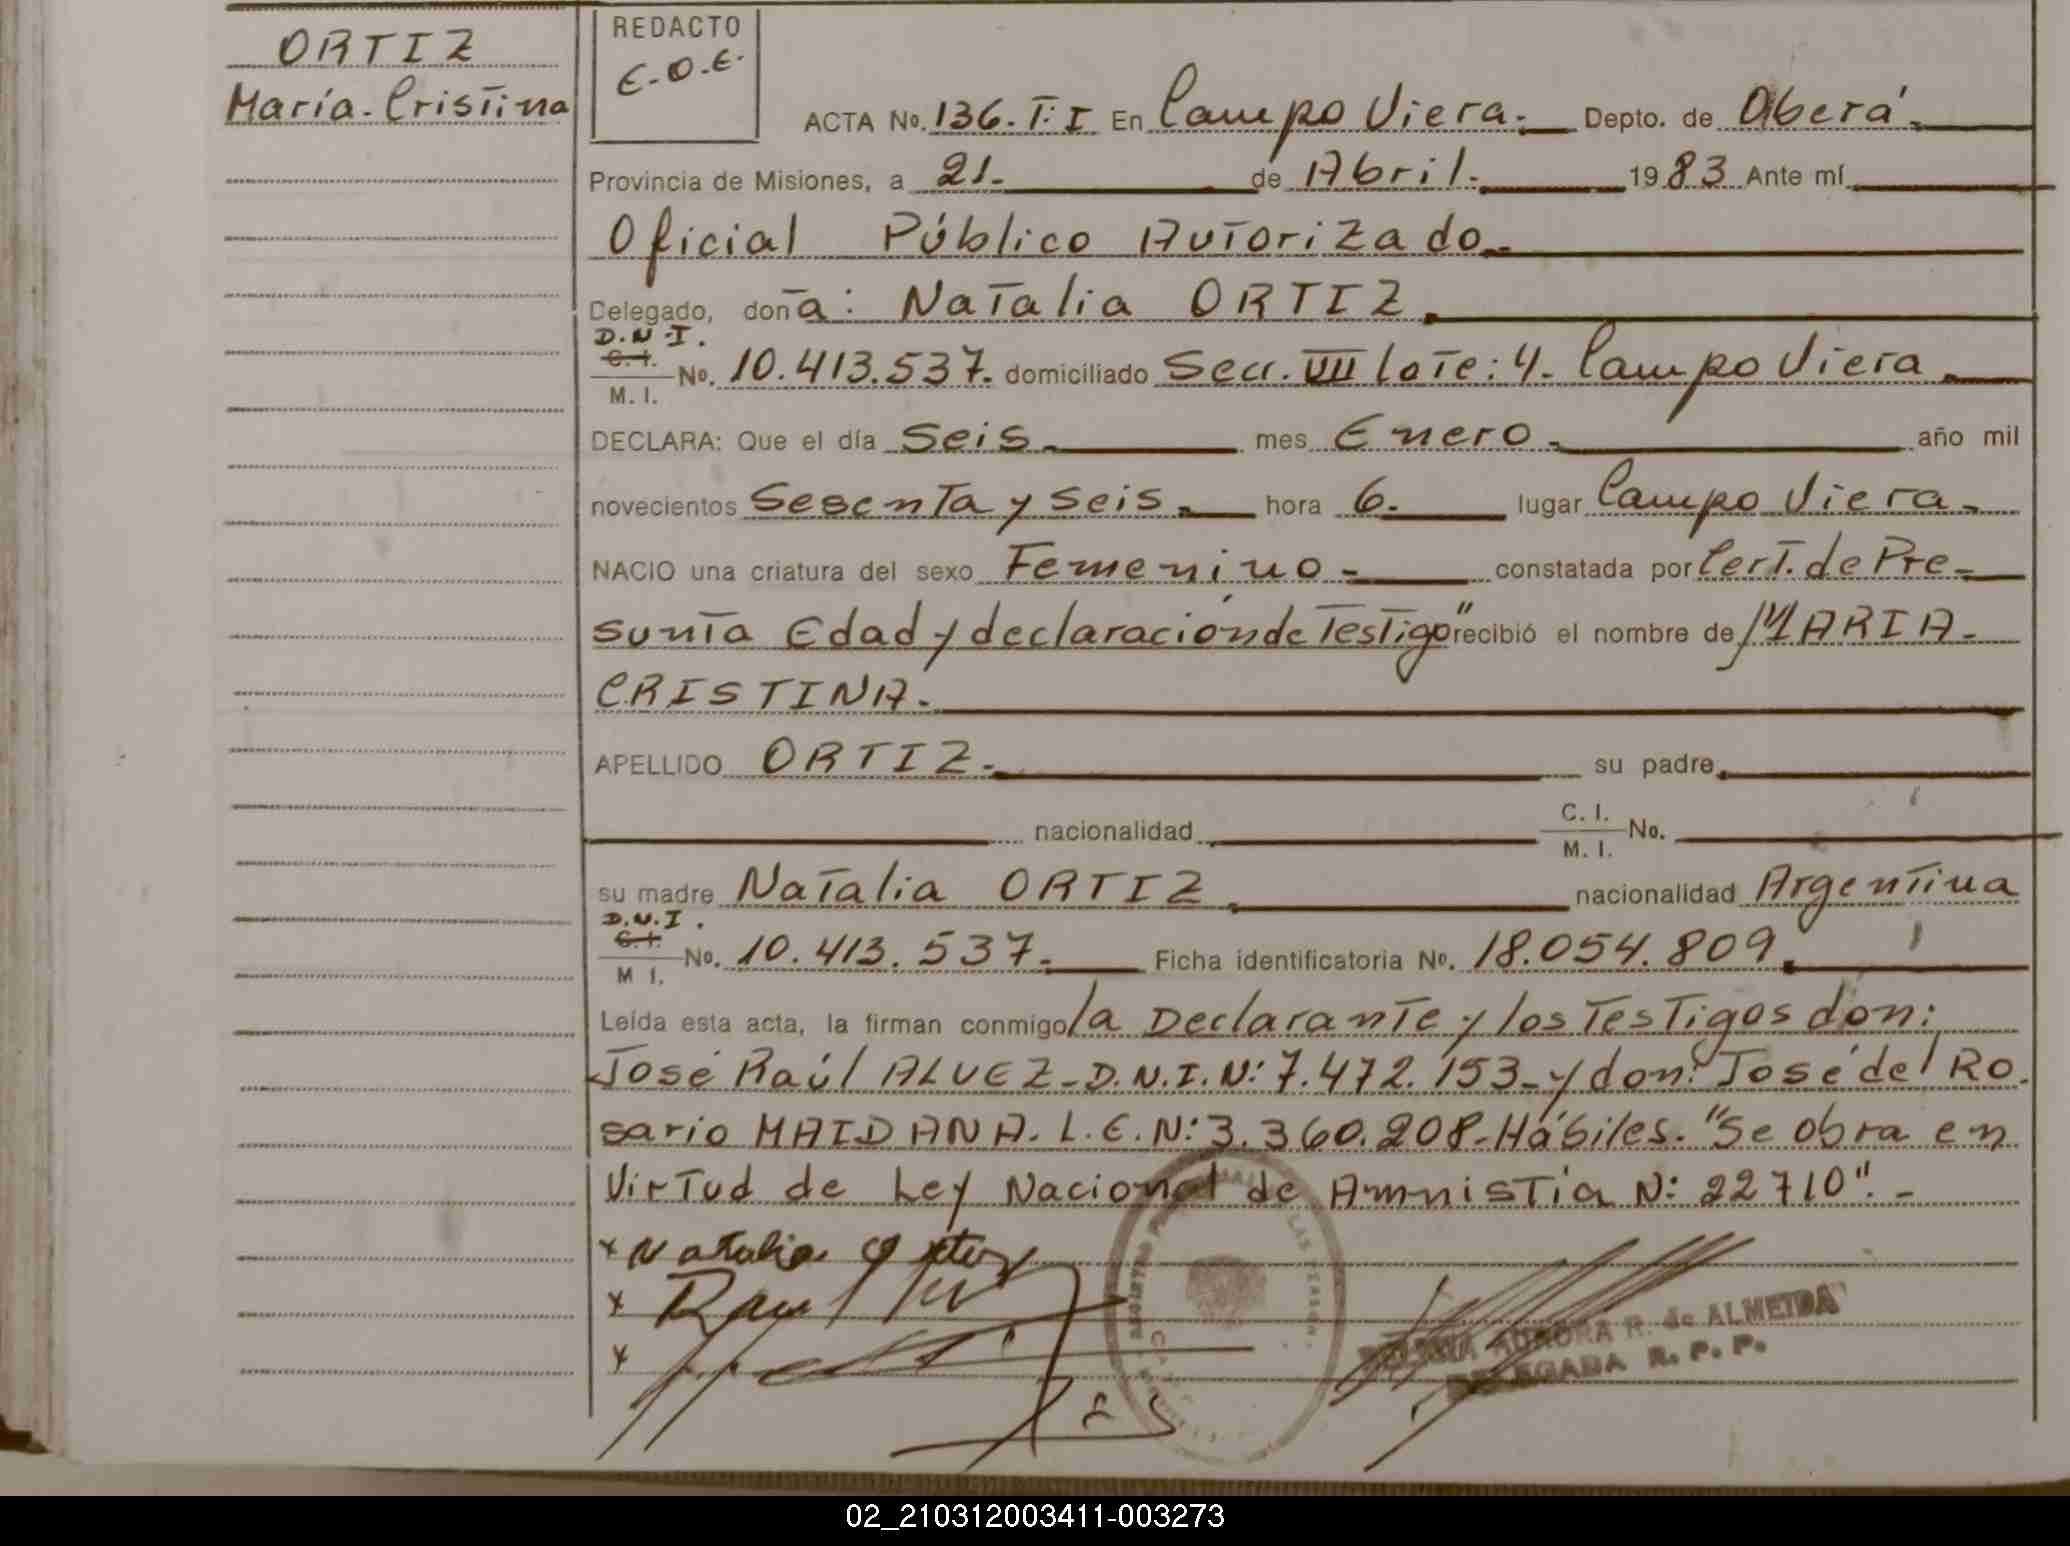 ORTIZ
María-Cristina
REDACTO
E.O.E.
ACTA No. 136.T:I En Campo Viera. Depto. de Oberá.
Provincia de Misiones, a 21. de Abril. 1983 Ante mí
Oficial Público Autorizado.
Delegado, don a: Natalia ORTIZ.
D.N.I.
C.I.
M. I.
No. 10.413.537. domiciliado Secc. VIII lote: 4. Campo Viera.
DECLARA: Que el día Seis. mes Enero. año mil
novecientos Sesenta y seis. hora 6. lugar Campo Viera.
NACIO una criatura del sexo Femenino. constatada por Cert. de Pre-
sunta Edad y declaración de Testigo" recibió el nombre de MARIA.
CRISTINA.
APELLIDO ORTIZ. su padre
nacionalidad C. I. M. I. No.
su madre Natalia ORTIZ. nacionalidad Argentina
D.N.I.
C.I.
M I.
No. 10.413.537. Ficha identificatoria No. 18.054.809.
Leída esta acta, la firman conmigo la Declarante y los Testigos don:
José Raúl ALVEZ-D.N.I.N: 7.472.153-y don: José del Ro.
sario MAIDANA. L.E.N: 3.360.208-Hábiles. "Se obra en
Virtud de Ley Nacional de Amnistía N: 22710".-
x Natalia Ortiz
x Raul
x
AURORA R. de ALMEIDA
DELEGADA R. P. P.
02_210312003411-003273